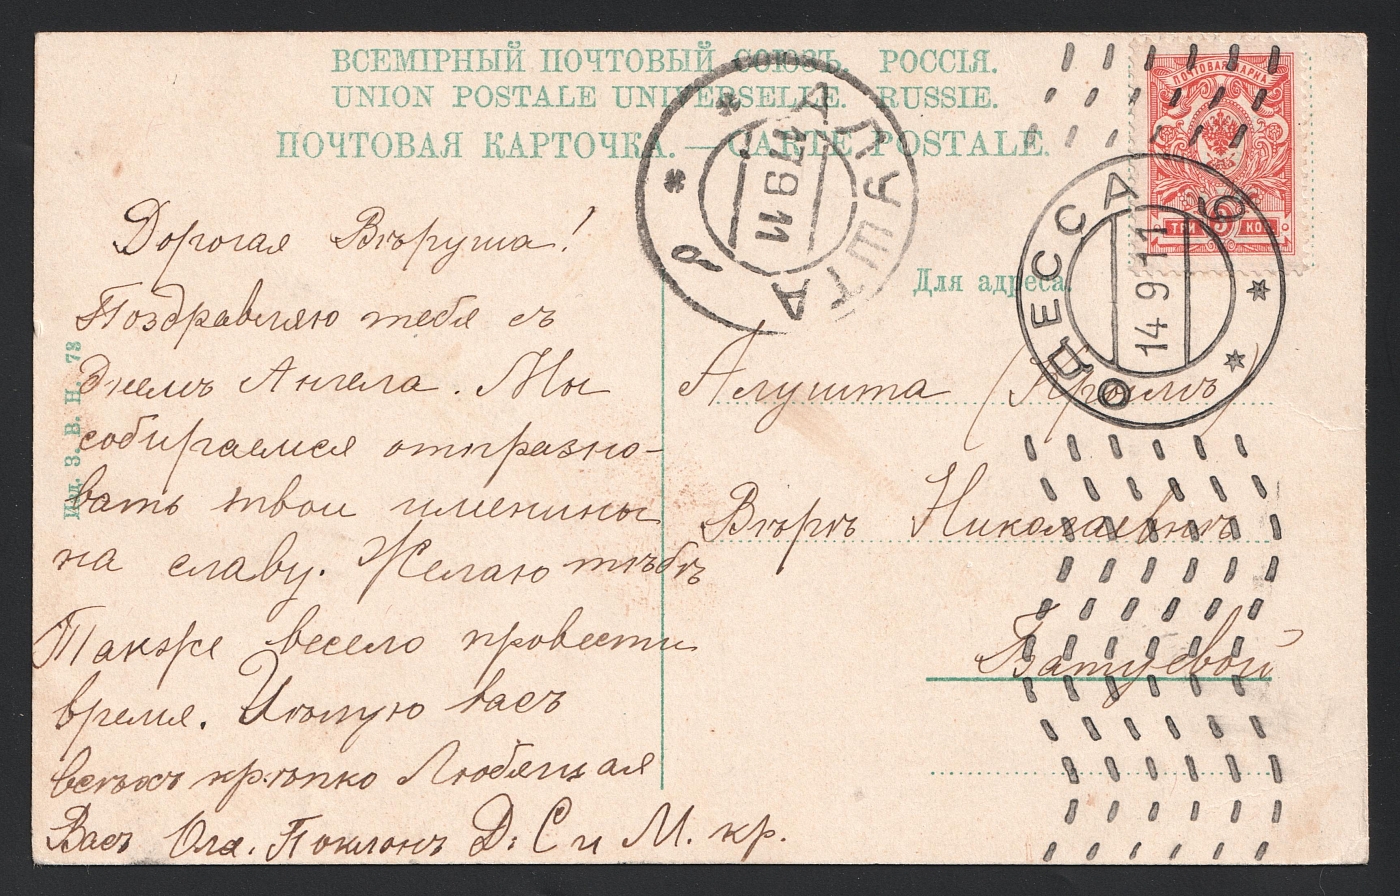 ВСЕМІРНЫЙ ПОЧТОВЫЙ СОЮЗЪ. РОССІЯ.
UNION POSTALE UNIVERSELLE. RUSSIE.
ПОЧТОВАЯ КАРТОЧКА. — CARTE POSTALE.
ПОЧТОВАЯ МАРКА
ТРИ 3 КОП.
АЛУШТА
11 9 11
ОДЕССА
14 9 11
6
Для адреса.
Изд. З. В. Н. 73
Дорогая Вѣруша!
Поздравляю тебя съ
днемъ Ангела. Мы
собираемся отпраздно-
вать твои именины
на славу. Желаю тѣбѣ
также весело провести
время. Цѣлую васъ
всѣхъ крѣпко Любящая
Васъ Оля. Поклонъ Д. С и М. кр.
Алушта (Крымъ)
Вѣрѣ Николаевнѣ
Батуевой